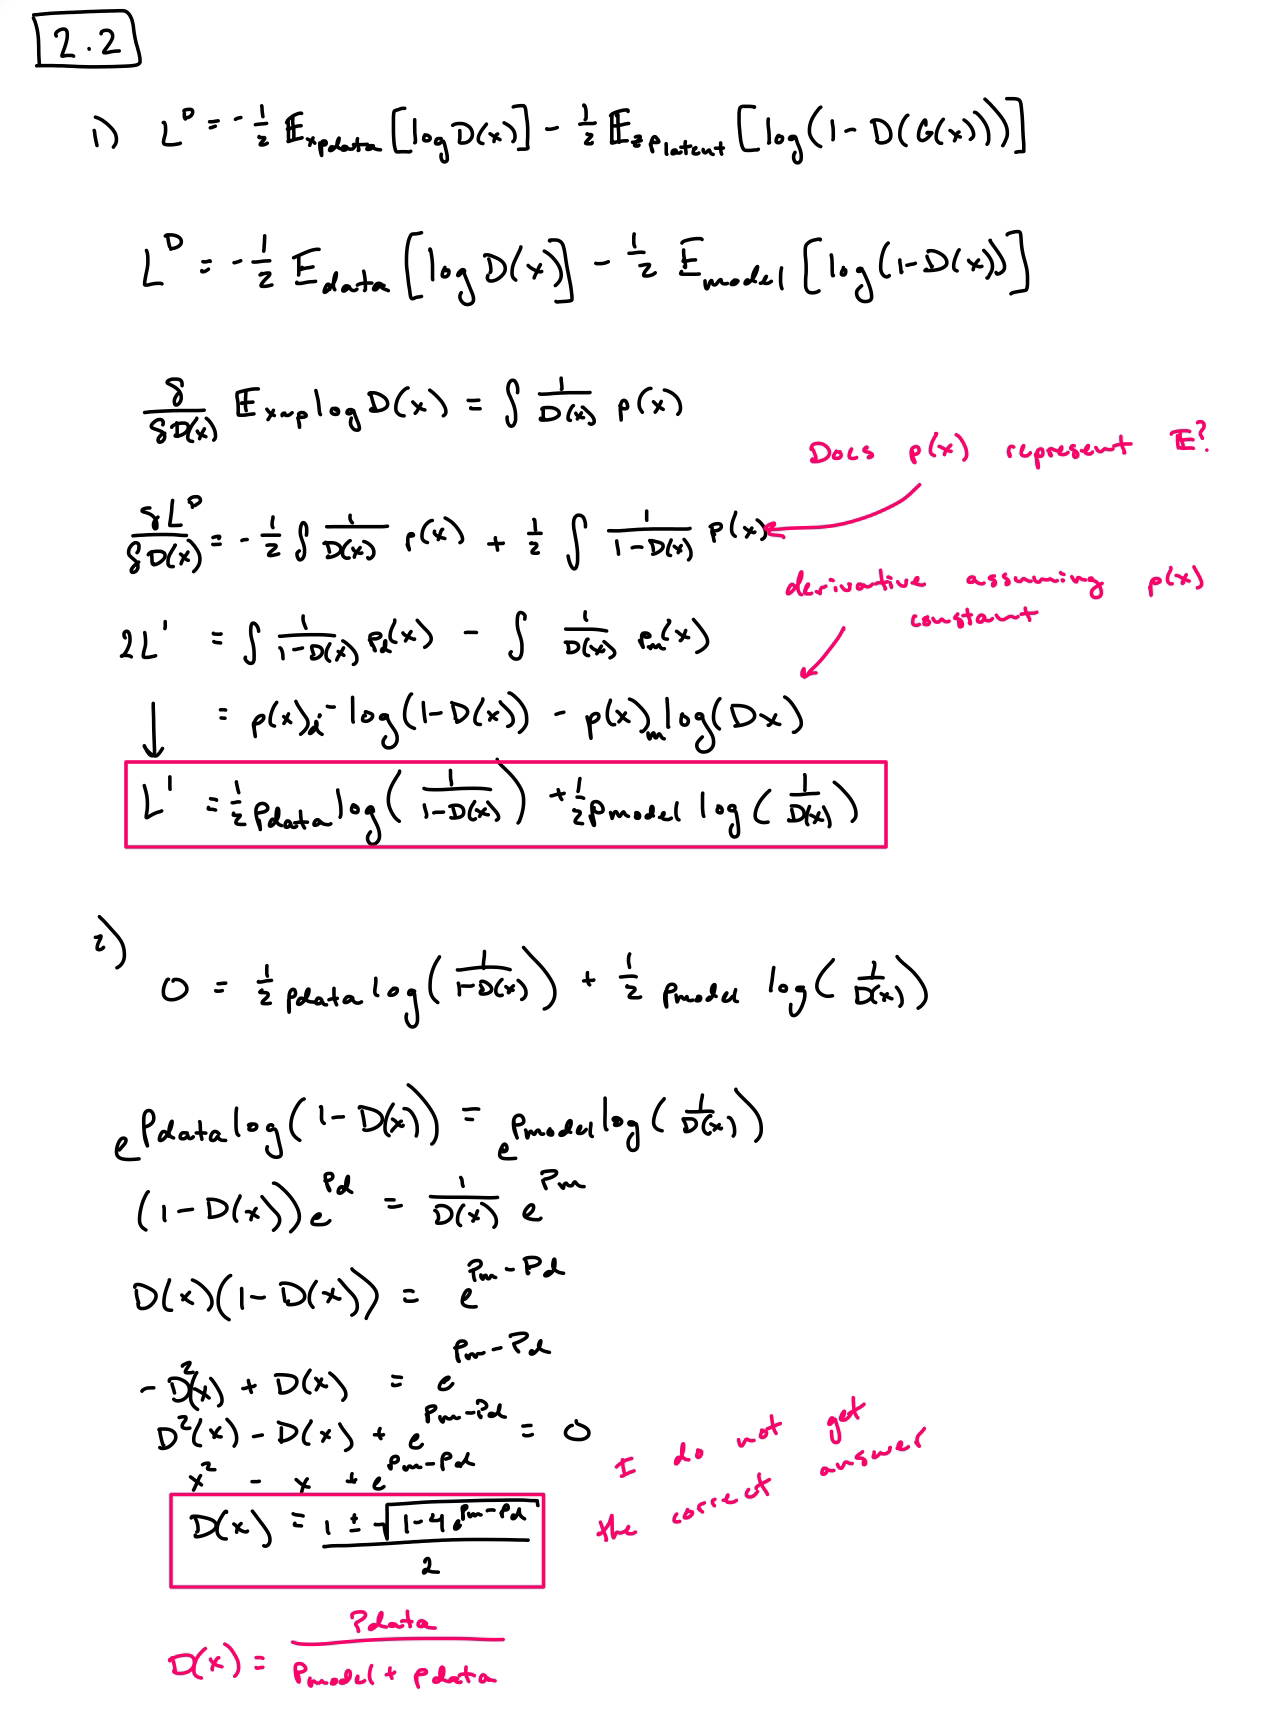 2.2
1) L^D = -1/2 𝔼_{x p data} [log D(x)] - 1/2 𝔼_{z p latent} [log(1 - D(G(x)))]
L^D = -1/2 E_data [log D(x)] - 1/2 E_model [log(1-D(x))]
δ/δD(x) 𝔼_{x~p} log D(x) = ∫ 1/D(x) p(x)
Does p(x) represent 𝔼?
δL^D/δD(x) = -1/2 ∫ 1/D(x) p(x) + 1/2 ∫ 1/(1-D(x)) p(x)
derivative assuming p(x)
constant
2L' = ∫ 1/(1-D(x)) p_d(x) - ∫ 1/D(x) p_m(x)
↓ = p(x)_d - log(1-D(x)) - p(x)_m log(Dx)
L' = 1/2 p_data log(1/(1-D(x))) + 1/2 p_model log(1/D(x))
2)
0 = 1/2 p_data log(1/(1-D(x))) + 1/2 p_model log(1/D(x))
e^{p_data log(1-D(x))} = e^{p_model log(1/D(x))}
(1-D(x)) e^{p_d} = 1/D(x) e^{p_m}
D(x)(1-D(x)) = e^{p_m - p_d}
-D²(x) + D(x) = e^{p_m - p_d}
D²(x) - D(x) + e^{p_m - p_d} = 0
x² - x + e^{p_m - p_d}
I do not get
the correct answer
D(x) = (1 ± √(1-4e^{p_m - p_d}))/2
D(x) = p_data/(p_model + p_data)